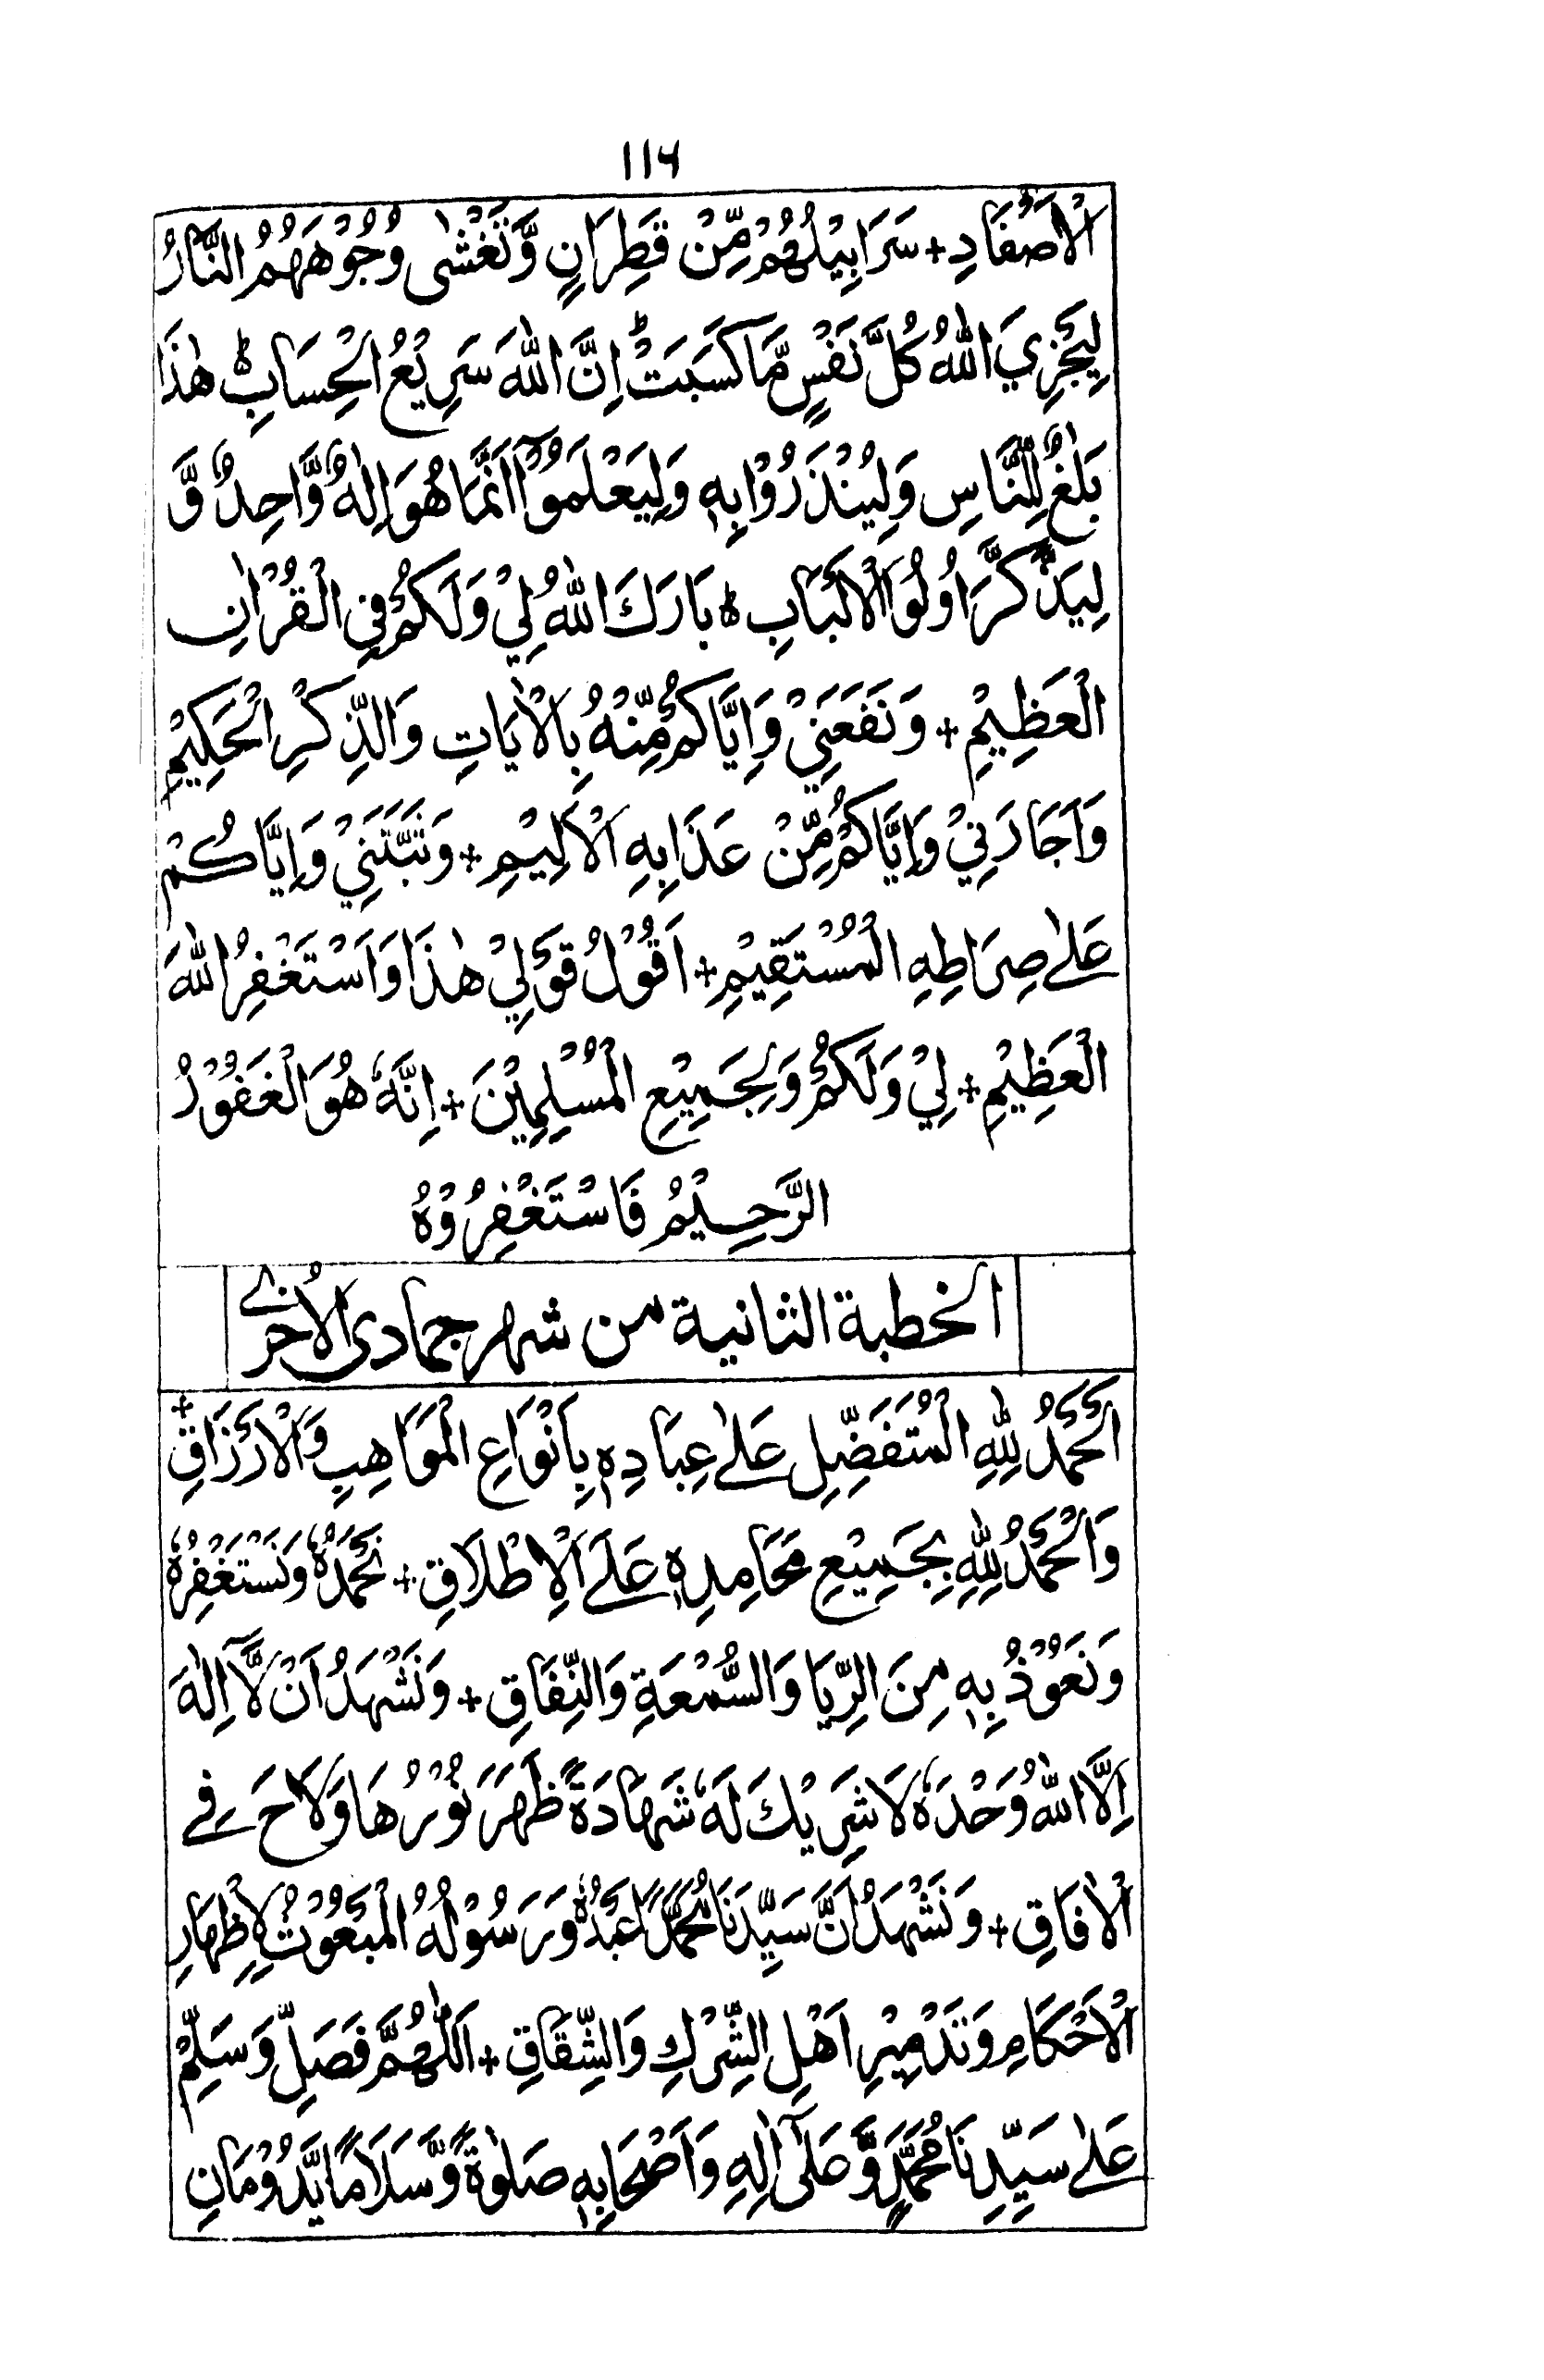 ۱۱۶
الْاَصْفَادِ + سَرَابِيْلُهُمْ مِّنْ قَطِرَانٍ وَّتَغْشٰى وُجُوْهَهُمُ النَّارُ
لِيَجْزِيَ اللّٰهُ كُلَّ نَفْسٍ مَّا كَسَبَتْ ؕ اِنَّ اللّٰهَ سَرِيْعُ الْحِسَابِ ؕ هٰذَا
بَلٰغٌ لِّلنَّاسِ وَلِيُنْذَرُوْا بِهٖ وَلِيَعْلَمُوْٓا اَنَّمَا هُوَ اِلٰهٌ وَّاحِدٌ وَّ
لِيَذَّكَّرَ اُولُوا الْاَلْبَابِ ہ بَارَكَ اللّٰهُ لِيْ وَلَكُمْ فِي الْقُرْاٰنِ
الْعَظِيْمِ + وَنَفَعَنِيْ وَاِيَّاكُمْ مِّنْهُ بِالْاٰيَاتِ وَالذِّكْرِ الْحَكِيْمِ
وَاَجَارَنِيْ وَاِيَّاكُمْ مِّنْ عَذَابِهِ الْاَلِيْمِ + وَثَبَّتَنِيْ وَاِيَّاكُمْ
عَلٰے صِرَاطِهِ الْمُسْتَقِيْمِ + اَقُوْلُ قَوْلِيْ هٰذَا وَاَسْتَغْفِرُ اللّٰهَ
الْعَظِيْمِ + لِيْ وَلَكُمْ وَلِجَمِيْعِ الْمُسْلِمِيْنَ + اِنَّهٗ هُوَ الْغَفُوْرُ
الرَّحِيْمُ فَاسْتَغْفِرُوْهُ
الخطبة الثانية من شهر جمادى الأُخرٰے
اَلْحَمْدُ لِلّٰهِ الْمُتَفَضِّلِ عَلٰے عِبَادِهٖ بِاَنْوَاعِ الْمَوَاهِبِ وَالْاَرْزَاقِ +
وَالْحَمْدُ لِلّٰهِ بِجَمِيْعِ مَحَامِدِهٖ عَلَے الْاِطْلَاقِ + نَحْمَدُهٗ وَنَسْتَغْفِرُهٗ
وَنَعُوْذُ بِهٖ مِنَ الرِّيَا وَالسُّمْعَةِ وَالنِّفَاقِ + وَنَشْهَدُ اَنْ لَّآ اِلٰهَ
اِلَّا اللّٰهُ وَحْدَهٗ لَا شَرِيْكَ لَهٗ شَهَادَةً ظَهَرَ نُوْرُهَا وَلَاحَ فِے
الْاٰفَاقِ + وَنَشْهَدُ اَنَّ سَيِّدَنَا مُحَمَّدًا عَبْدُهٗ وَرَسُوْلُهُ الْمَبْعُوْثُ لِاِظْهَارِ
الْاَحْكَامِ وَتَدْمِيْرِ اَهْلِ الشِّرْكِ وَالشِّقَاقِ + اَللّٰهُمَّ فَصَلِّ وَسَلِّمْ
عَلٰے سَيِّدِنَا مُحَمَّدٍ وَّعَلٰٓى اٰلِهٖ وَاَصْحَابِهٖ صَلٰوةً وَّسَلَامًا يَّدُوْمَانِ